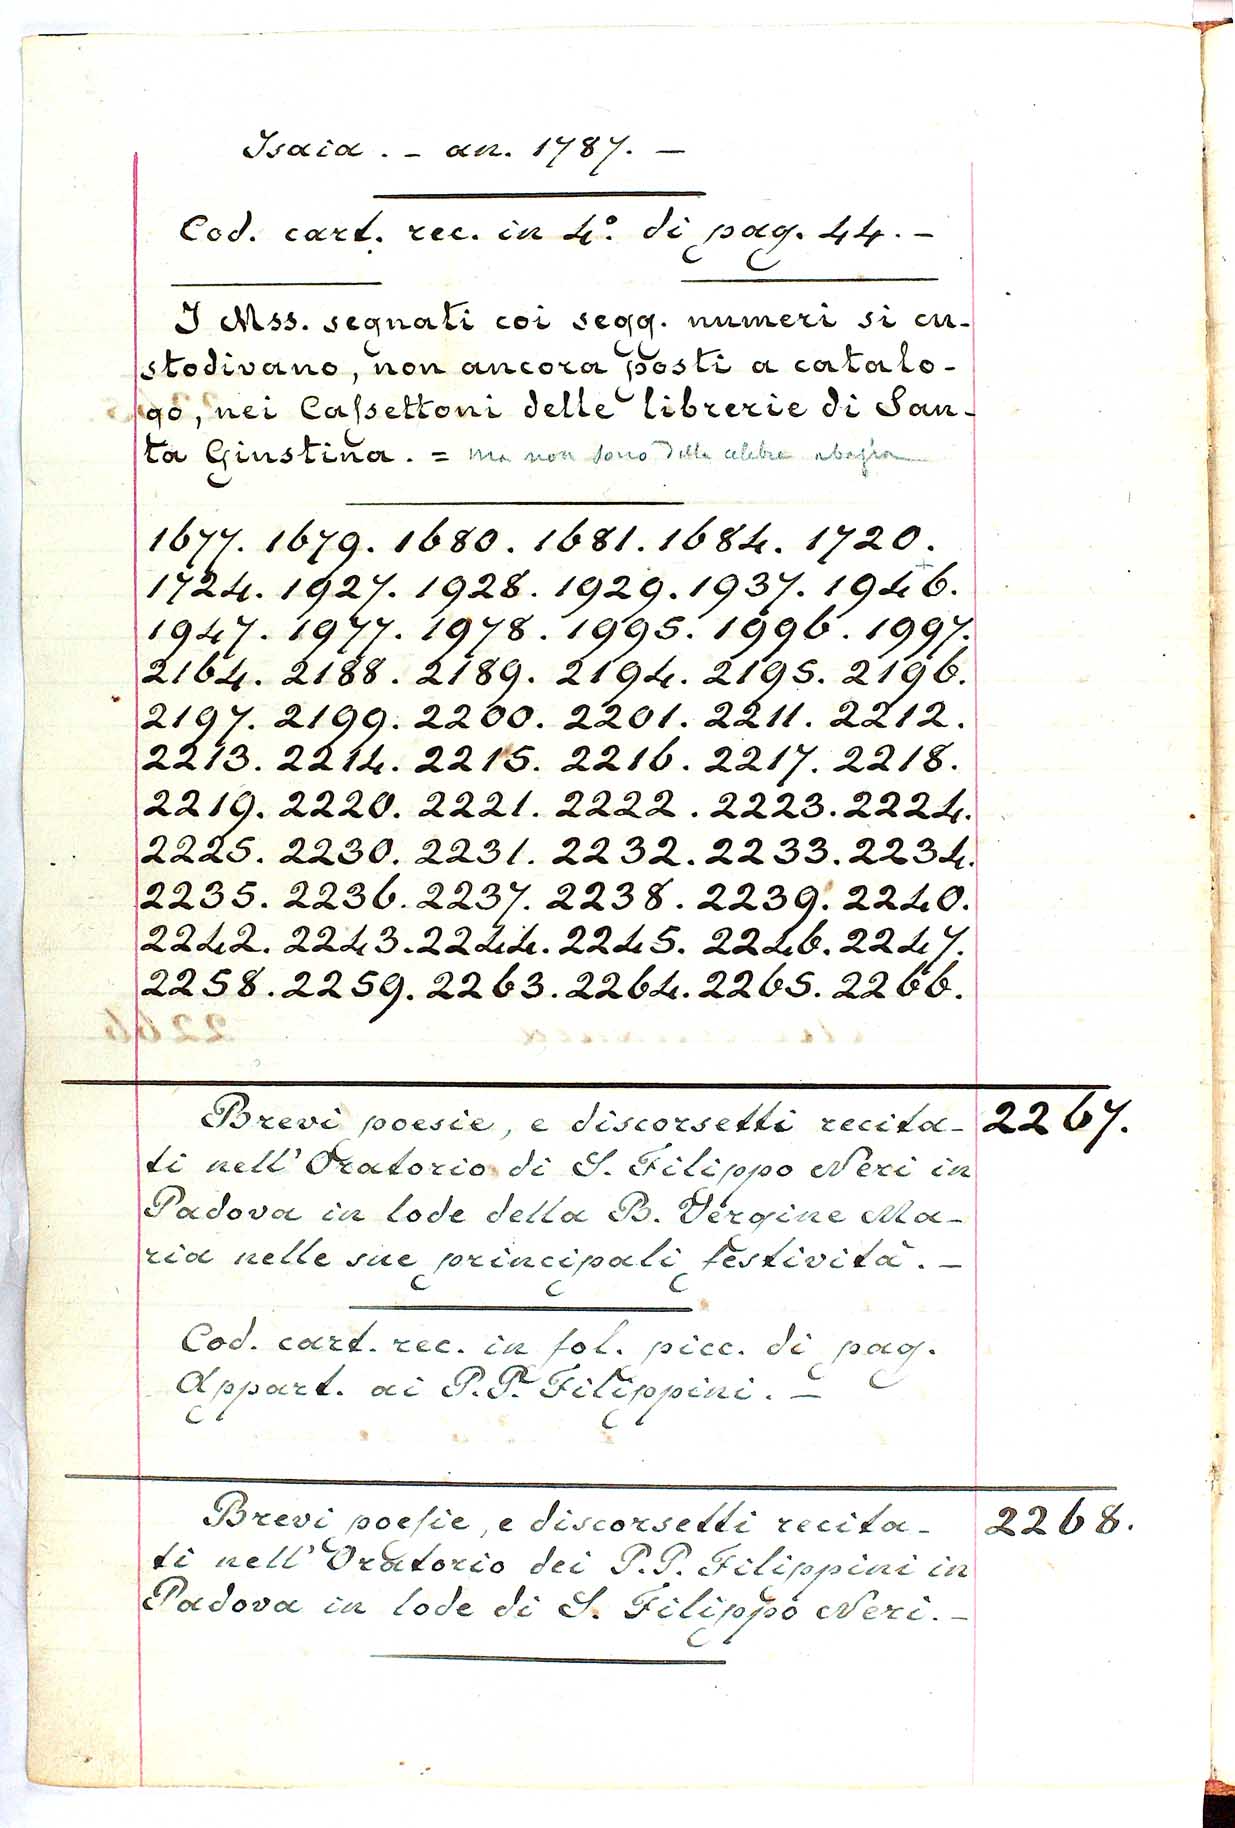 Isaia. - an. 1787. -
Cod. cart. rec. in 4°. di pag. 44. -
I Mss. segnati coi segg. numeri si cu-
stodivano, non ancora posti a catalo-
go, nei Caſsettoni delle librerie di San-
ta Giustina. = ma non sono della celebre abazia
1677. 1679. 1680. 1681. 1684. 1720.
1724. 1927. 1928. 1929. 1937. 1946.
1947. 1977. 1978. 1995. 1996. 1997.
2164. 2188. 2189. 2194. 2195. 2196.
2197. 2199. 2200. 2201. 2211. 2212.
2213. 2214. 2215. 2216. 2217. 2218.
2219. 2220. 2221. 2222. 2223. 2224.
2225. 2230. 2231. 2232. 2233. 2234.
2235. 2236. 2237. 2238. 2239. 2240.
2242. 2243. 2244. 2245. 2246. 2247.
2258. 2259. 2263. 2264. 2265. 2266.
Brevi poesie, e discorsetti recita- 2267.
ti nell' Oratorio di S. Filippo Neri in
Padova in lode della B. Vergine Ma-
ria nelle sue principali festività. -
Cod. cart. rec. in fol. picc. di pag.
Appart. ai P.P. Filippini. -
Brevi poeſie, e discorsetti recita- 2268.
ti nell' Oratorio dei P.P. Filippini in
Padova in lode di S. Filippo Neri. -